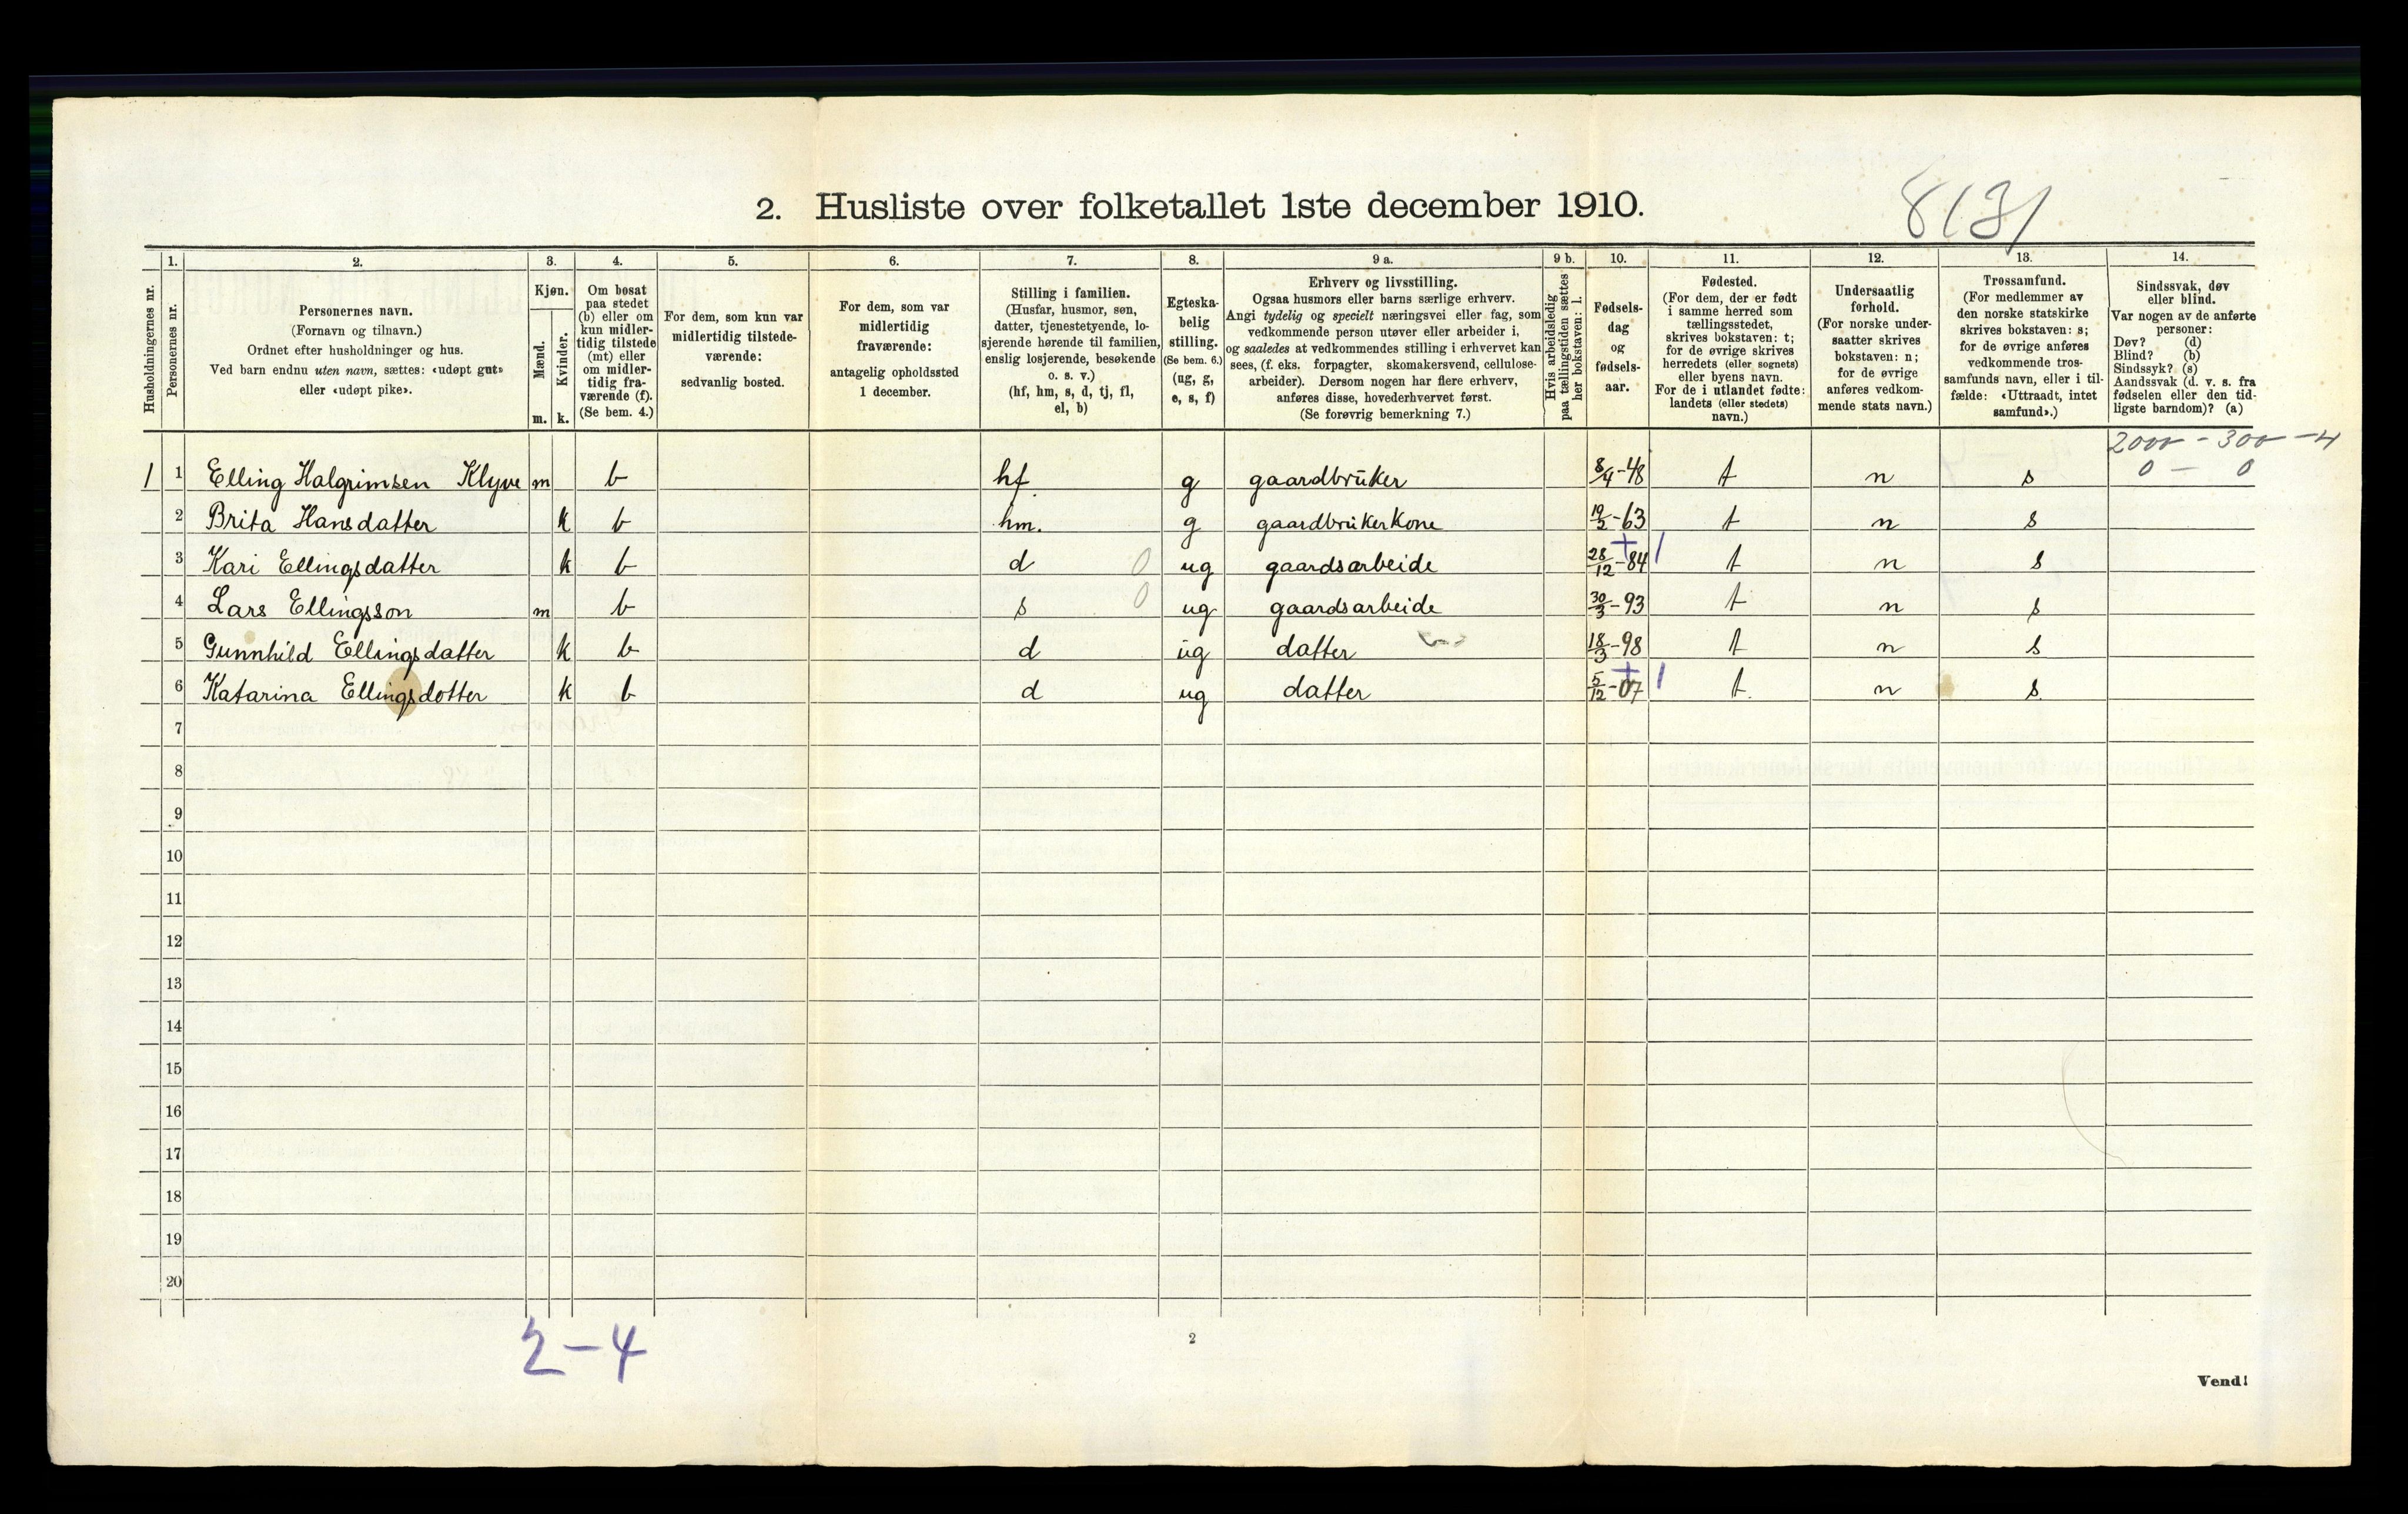 2. Husliste over folketallet 1ste december 1910.
1. 2. 3. 4. 5. 6. 7. 8. 9 a. 9 b. 10. 11. 12. 13. 14.
Husholdningernes nr.
Personernes nr.
Personernes navn.
(Fornavn og tilnavn.)
Ordnet efter husholdninger og hus.
Ved barn endnu uten navn, sættes: «udøpt gut»
eller «udøpt pike».
Kjøn.
Mænd.
Kvinder.
m. k.
Om bosat
paa stedet
(b) eller om
kun midler-
tidig tilstede
(mt) eller
om midler-
tidig fra-
værende (f).
(Se bem. 4.)
For dem, som kun var
midlertidig tilstede-
værende:
sedvanlig bosted.
For dem, som var
midlertidig
fraværende:
antagelig opholdssted
1 december.
Stilling i familien.
(Husfar, husmor, søn,
datter, tjenestetyende, lo-
sjerende hørende til familien,
enslig losjerende, besøkende
o. s. v.)
(hf, hm, s, d, tj, fl,
el, b)
Egteska-
belig
stilling.
(Se bem. 6.)
(ug, g,
e, s, f)
Erhverv og livsstilling.
Ogsaa husmors eller barns særlige erhverv.
Angi tydelig og specielt næringsvei eller fag, som
vedkommende person utøver eller arbeider i,
og saaledes at vedkommendes stilling i erhvervet kan
sees, (f. eks. forpagter, skomakersvend, cellulose-
arbeider). Dersom nogen har flere erhverv,
anføres disse, hovederhvervet først.
(Se forøvrig bemerkning 7.)
Hvis arbeidsledig
paa tællingstiden sættes
her bokstaven: l.
Fødsels-
dag
og
fødsels-
aar.
Fødested.
(For dem, der er født
i samme herred som
tællingsstedet,
skrives bokstaven: t;
for de øvrige skrives
herredets (eller sognets)
eller byens navn.
For de i utlandet fødte:
landets (eller stedets)
navn.)
Undersaatlig
forhold.
(For norske under-
saatter skrives
bokstaven: n;
for de øvrige
anføres vedkom-
mende stats navn.)
Trossamfund.
(For medlemmer av
den norske statskirke
skrives bokstaven: s;
for de øvrige anføres
vedkommende tros-
samfunds navn, eller i til-
fælde: «Uttraadt, intet
samfund».)
Sindssvak, døv
eller blind.
Var nogen av de anførte
personer:
Døv? (d)
Blind? (b)
Sindssyk? (s)
Aandssvak (d. v. s. fra
fødselen eller den tid-
ligste barndom)? (a)
0 — 0
1 1 Elling Halgrimsen Klyve m b hf g gaardbruker 8/4-48 t n s
2 Brita Hansdatter k b hm. g gaardbrukerkone 19/2-63 t n s
3 Kari Ellingsdatter k b d 0 ug gaardsarbeide 28/12-84 t n s
4 Lars Ellingsson m b s 0 ug gaardsarbeide 30/3-93 t n s
5 Gunnhild Ellingsdatter k b d ug datter 18/3-98 t n s
6 Katarina Ellingsdotter k b d ug datter 5/12-07 t. n s.
7
8
9
10
11
12
13
14
15
16
17
18
19
20
2-4
2
Vend!